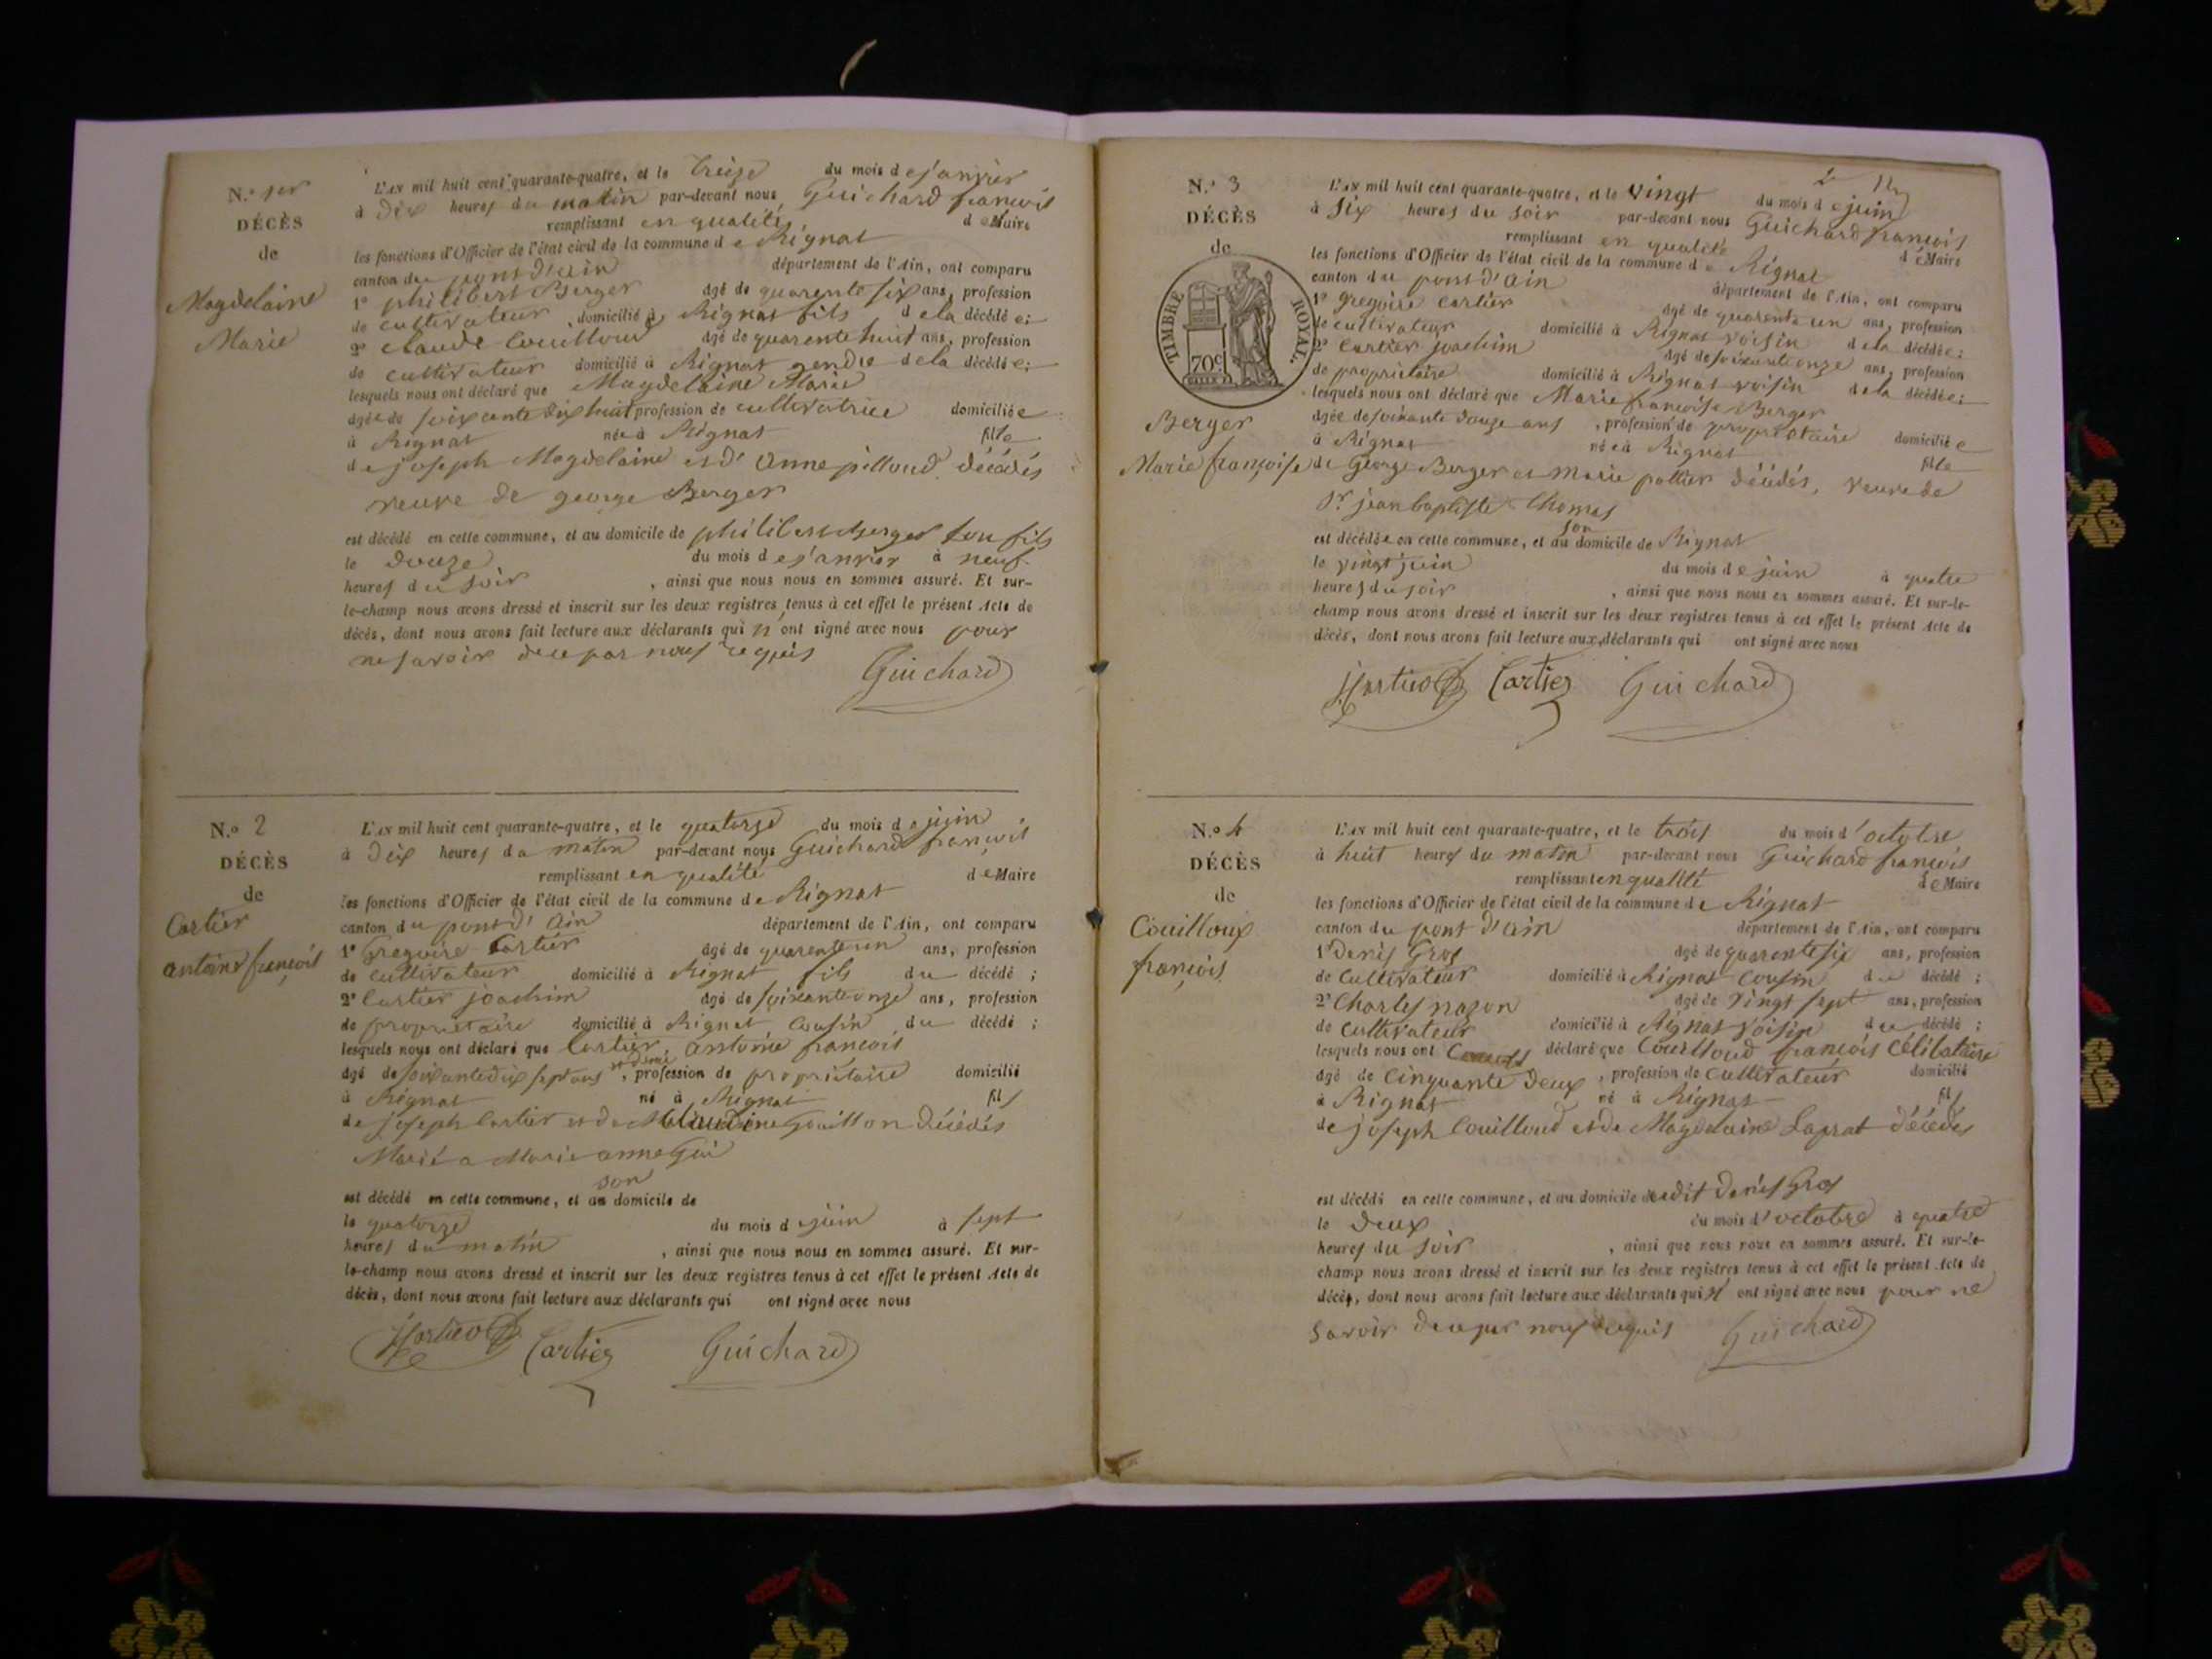 N.o 1er
DÉCÈS
de
Magdelaine
Marie
L'AN mil huit cent quarante-quatre, et le treize du mois de janvier
à dix heures du matin par-devant nous Guichard françois
remplissant en qualité de Maire
les fonctions d'Officier de l'état civil de la commune de Rignat
canton du pont d'ain département de l'Ain, ont comparu
1° philibert Berger âgé de quarente six ans, profession
de cultivateur domicilié à Rignat fils de la décédée;
2° claude Couilloud âgé de quarente huit ans, profession
de cultivateur domicilié à Rignat gendre de la décédée;
lesquels nous ont déclaré que Magdelaine Marie
âgée de soixante dix huit profession de cultivatrice domiciliée
à Rignat née à Rignat fille
de joseph Magdelaine et d'Anne pilloud décédés
veuve de george Berger
est décédé en cette commune, et au domicile de philibert Berger son fils
le douze du mois de janvier à neuf
heures du soir, ainsi que nous nous en sommes assuré. Et sur-
le-champ nous avons dressé et inscrit sur les deux registres tenus à cet effet le présent Acte de
décès, dont nous avons fait lecture aux déclarants qui n'ont signé avec nous pour
ne savoir de ce par nous requis
Guichard
N.o 2
DÉCÈS
de
Cartier
antoine françois
L'AN mil huit cent quarante-quatre, et le quatorze du mois de juin
à dix heures du matin par-devant nous Guichard françois
remplissant en qualité de Maire
les fonctions d'Officier de l'état civil de la commune de Rignat
canton du pont d'ain département de l'Ain, ont comparu
1° Gregoire Cartier âgé de quarente un ans, profession
de cultivateur domicilié à Rignat fils du décédé;
2° Cartier joachim âgé de soixante onze ans, profession
de propriétaire domicilié à Rignat, Cousin du décédé;
lesquels nous ont déclaré que Cartier antoine françois
âgé de soixante dix sept ans et demi, profession de propriétaire domicilié
à Rignat né à Rignat fils
de joseph Cartier et de Claudine Gouillon décédés
Marié a Marie anne Gui
est décédé en cette commune, et au son domicile de
le quatorze du mois de juin à sept
heures du matin, ainsi que nous nous en sommes assuré. Et sur-
le-champ nous avons dressé et inscrit sur les deux registres tenus à cet effet le présent Acte de
décès, dont nous avons fait lecture aux déclarants qui ont signé avec nous
Cartier Guichard
N.o 3
DÉCÈS
de
TIMBRE ROYAL.
70c
Berger
Marie françoise
L'AN mil huit cent quarante-quatre, et le vingt du mois de juin
à six heures du soir par-devant nous Guichard françois
remplissant en qualité de Maire
les fonctions d'Officier de l'état civil de la commune de Rignat
canton du pont d'ain département de l'Ain, ont comparu
1° gregoire Cartier âgé de quarente un ans, profession
de cultivateur domicilié à Rignat voisin de la décédée;
2° Cartier joachim âgé de soixante onze ans, profession
de propriétaire domicilié à Rignat voisin de la décédée;
lesquels nous ont déclaré que Marie françoise Berger
âgée de soixante douze ans, profession de propriétaire domiciliée
à Rignat née à Rignat fille
de George Berger et Marie pottier décédés, veuve de
Sr. jean baptiste thomas
est décédée en cette commune, et au son domicile de Rignat
le vingt juin du mois de juin à quatre
heures du soir, ainsi que nous nous en sommes assuré. Et sur-le-
champ nous avons dressé et inscrit sur les deux registres tenus à cet effet le présent Acte de
décès, dont nous avons fait lecture aux déclarants qui ont signé avec nous
Cartier Guichard
N.o 4
DÉCÈS
de
Couilloux
françois
L'AN mil huit cent quarante-quatre, et le trois du mois d'octobre
à huit heures du matin par-devant nous Guichard françois
remplissant en qualité de Maire
les fonctions d'Officier de l'état civil de la commune de Rignat
canton du pont d'ain département de l'Ain, ont comparu
1° Denis Gros âgé de quarente six ans, profession
de Cultivateur domicilié à Rignat Cousin du décédé;
2° Charles nazon âgé de vingt sept ans, profession
de Cultivateur domicilié à Rignat voisin du décédé;
lesquels nous ont déclaré que Couilloud françois Célibataire
âgé de Cinquante deux, profession de Cultivateur domicilié
à Rignat né à Rignat fils
de joseph Couilloud et de Magdelaine Laprat décédés
est décédé en cette commune, et au domicile dudit Denis Gros
le deux du mois d'octobre à quatre
heures du soir, ainsi que nous nous en sommes assuré. Et sur-le-
champ nous avons dressé et inscrit sur les deux registres tenus à cet effet le présent Acte de
décès, dont nous avons fait lecture aux déclarants qui n'ont signé avec nous pour ne
savoir de ce par nous requis Guichard